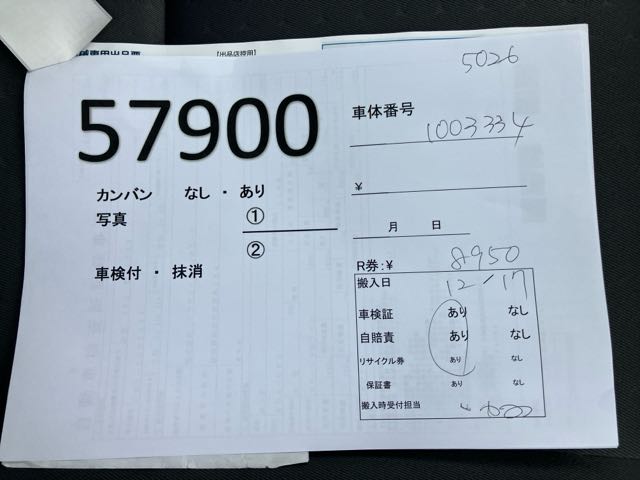 【出品店控用】
5026
57900
車体番号
1003334
カンバン なし ・ あり
￥
写真 ①
月 日
②
車検付 ・ 抹消
R券:￥ 8950
搬入日 12/17
車検証 あり なし
自賠責 あり なし
リサイクル券 あり なし
保証書 あり なし
搬入時受付担当